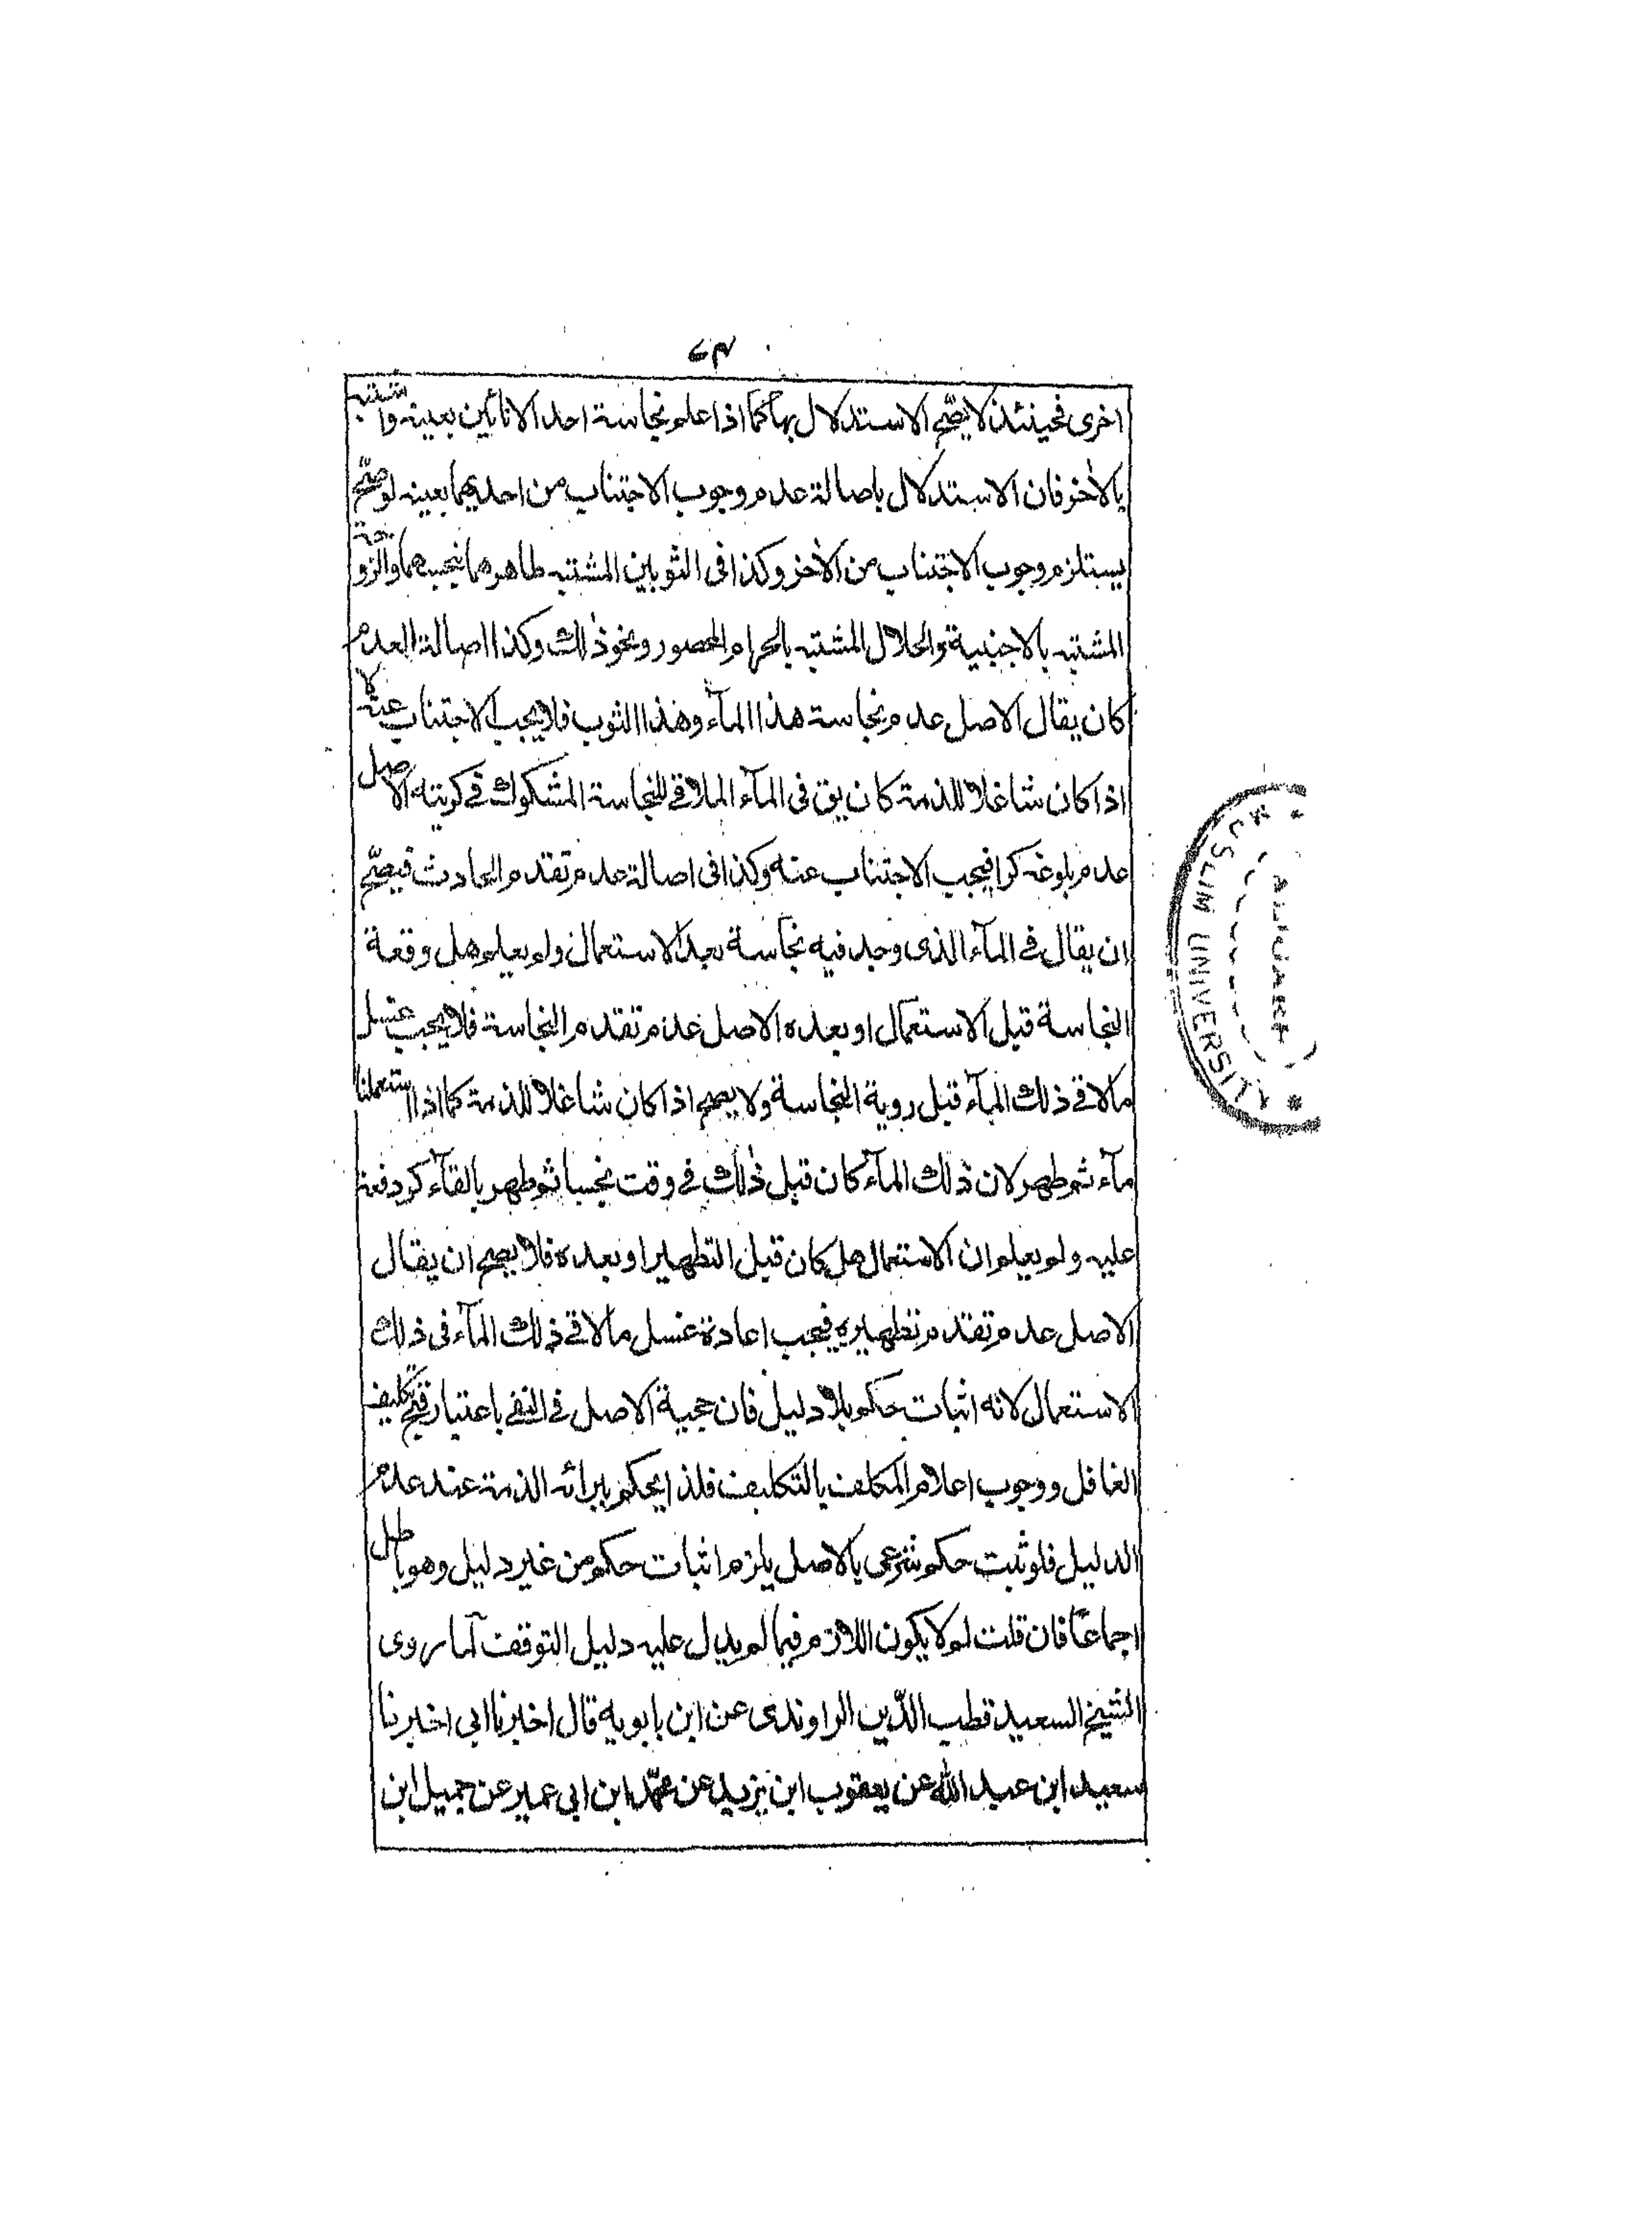 ٧٣
اخرى فحينئذ لا يصّح الاستدلال بها كما اذا علم نجاسة احد الانائين بعينه واشتبه
بالاخر فان الاستدلال باصالة عدم وجوب الاجتناب من احديهما بعينه لو صّح
يستلزم وجوب الاجتناب من الاخر وكذا فى الثوبين المشتبه طاهرهما بنجسهما والزوجة
المشتبه بالاجنبية والحلال المشتبه بالحرام المحصور ونحو ذلك وكذا اصالة العدم
كان يقال الاصل عدم نجاسة هذا المآء وهذا الثوب فلا يجب الاجتناب عنه لا
اذا كان شاغلا للذمة كان يق فى المآء الملاقى للنجاسة المشكوك فى كريته الاصل
عدم بلوغه كرا فيجب الاجتناب عنه وكذا فى اصالة عدم تقدم الحادث فيصّح
ان يقال فى المآء الذى وجد فيه نجاسة بعد الاستعمال ولم يعلم هل وقعة
النجاسة قبل الاستعمال او بعده الاصل عدم تقدم النجاسة فلا يجب غسل
ما لاقى ذلك المآء قبل روية النجاسة ولا يصح اذا كان شاغلا للذمة كما اذا استعملنا
مآء ثم طهر لان ذلك المآء كان قبل ذلك فى وقت نجسا ثم طهر بالقآء كر دفعة
عليه ولم يعلم ان الاستعمال هل كان قبل التطهير او بعده فلا يصح ان يقال
الاصل عدم تقدم تطهيره فيجب اعادة غسل ما لاقى ذلك المآء فى ذلك
الاستعمال لانه اثبات حكم بلا دليل فان حجية الاصل فى النفى باعتبار قبح تكليف
الغافل ووجوب اعلام المكلف بالتكليف فلذا يحكم ببرائه الذمة عند عدم
الدليل فلو ثبت حكم شرعى بالاصل يلزم اثبات حكم من غير دليل وهو باطل
اجماعا فان قلت لم لا يكون اللازم فيما لم يدل عليه دليل التوقف لما روى
الشيخ السعيد قطب الدّين الراوندى عن ابن بابويه قال اخبرنا ابى اخبرنا
سعيد ابن عبد الله عن يعقوب ابن يزيد عن محمّد ابن ابى عمير عن جميل ابن
MUSLIM UNIVERSITY
ALIGARH